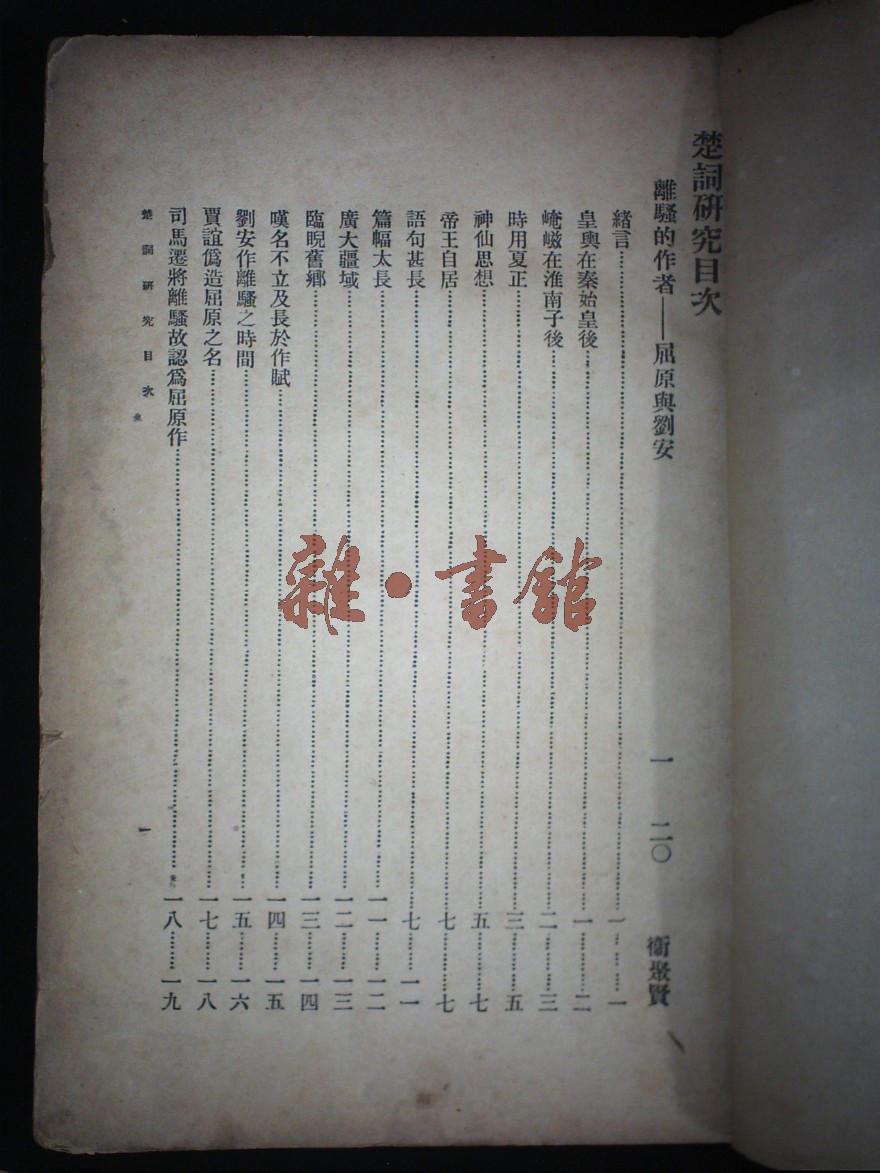 楚詞研究目次
離騷的作者——屈原與劉安 一 二〇 衞聚賢
緒言 一 一
皇輿在秦始皇後 一 二
崦嵫在淮南子後 二 三
時用夏正 三 五
神仙思想 五 七
帝王自居 七 七
語句甚長 七 一一
篇幅太長 一一 一二
廣大疆域 一二 一三
臨睨舊鄉 一三 一四
嘆名不立及長於作賦 一四 一五
劉安作離騷之時間 一五 一六
賈誼僞造屈原之名 一七 一八
司馬遷將離騷故認爲屈原作 一八 一九
楚詞研究目次 一
雜·書館